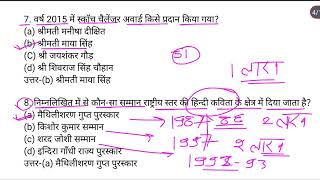 7. वर्ष 2015 में स्कॉच चैलेंजर अवार्ड किसे प्रदान किया गया?
(a) श्रीमती मनीषा दीक्षित
(b) श्रीमती माया सिंह
(C) श्री जयशंकर गौड़
(d) श्री शिवराज सिंह चौहान
उत्तर-(b) श्रीमती माया सिंह
51
1 लाख
8. निम्नलिखित में से कौन-सा सम्मान राष्ट्रीय स्तर की हिन्दी कविता के क्षेत्र में दिया जाता है?
(a) मैथिलीशरण गुप्त पुरस्कार
1987
2 लाख
(b) किशोर कुमार सम्मान
1997
(c) शरद जोशी सम्मान
2 लाख
(d) इन्दिरा गाँधी राज्य पुरस्कार
उत्तर-(a) मैथिलीशरण गुप्त पुरस्कार
93